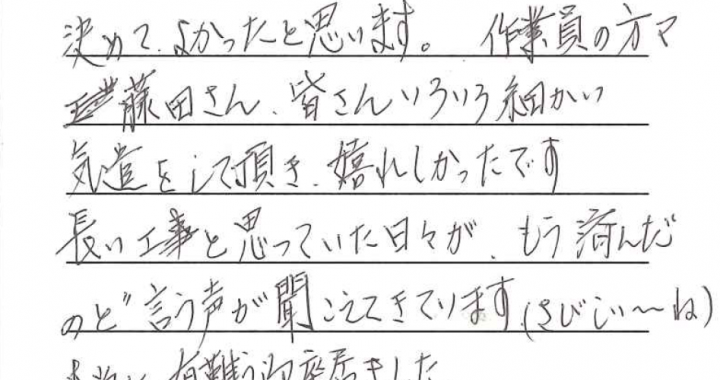 決めて、よかったと思います。 作業員の方々
藤田さん、皆さんいろいろ細かい
気遣をして頂き、嬉れしかったです
長い工事と思っていた日々が、もう済んだ
のと"言う声が聞こえてきています。(さびしい〜ね)
有難う御座居ました